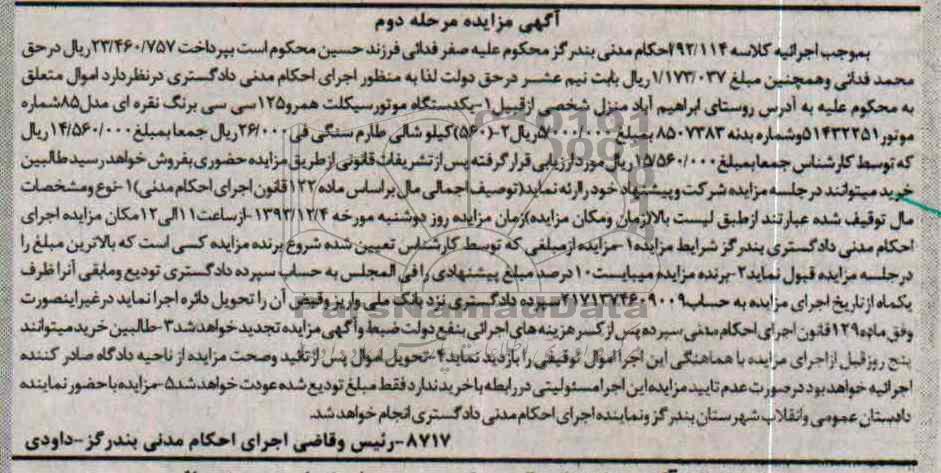 آگهی مزایده مرحله دوم
بموجب اجرائیه کلاسه ۹۲/۱۱۴احکام مدنی بندرگز محکوم علیه صفر فدائی فرزند حسین محکوم است بپرداخت ۲۳/۴۶۰/۷۵۷ریال درحق
محمد فدائی وهمچنین مبلغ ۱/۱۷۳/۰۳۷ ریال بابت نیم عشر درحق دولت لذا به منظور اجرای احکام مدنی دادگستری درنظردارد اموال متعلق
به محکوم علیه به آدرس روستای ابراهیم آباد منزل شخصی ازقبیل۱-یکدستگاه موتورسیکلت همرو۱۲۵سی سی برنگ نقره ای مدل۸۵شماره
موتور۵۱۴۳۲۲۵۱وشماره بدنه ۸۵۰۷۳۸۳ بمبلغ ۵/۰۰۰/۰۰۰ریال۲-(۵۶۰)کیلو شالی طارم سنگی فی۲۶/۰۰۰ریال جمعابمبلغ۱۴/۵۶۰/۰۰۰ریال
که توسط کارشناس جمعابمبلغ۱۵/۵۶۰/۰۰۰ریال مورد ارزیابی قرار گرفته پس ازتشریفات قانونی ازطریق مزایده حضوری بفروش خواهد رسیدطالبین
خرید میتوانند در جلسه مزایده شرکت وپیشنهاد خود راارئه نماید(توصیف اجمالی مال براساس ماده۱۲۲قانون اجرای احکام مدنی)۱-نوع ومشخصات
مال توقیف شده عبارتند ازطبق لیست بالا(زمان ومکان مزایده)زمان مزایده روز دوشنبه مورخه ۱۳۹۲/۱۲/۴-ازساعت۱۱الی۱۲مکان مزایده اجرای
احکام مدنی دادگستری بندرگز شرایط مزایده۱-مزایده ازمبلغی که توسط کارشناس تعیین شده شروع برنده مزایده کسی است که بالاترین مبلغ را
درجلسه مزایده قبول نماید۲-برنده مزایده میبایست۱۰درصد مبلغ پیشنهادی را فی المجلس به حساب سپرده دادگستری تودیع ومابقی آنرا ظرف
یکماه ازتاریخ اجرای مزایده به حساب۲۱۷۱۳۷۴۶۰۹۰۰۹سپرده دادگستری نزد بانک ملی واریز وقبض آن را تحویل دائره اجرا نماید درغیراینصورت
وفق ماده۱۲۹قانون اجرای احکام مدنی سپرده پس ازکسر هزینه های اجرائی بنفع دولت ضبط وآگهی مزایده تجدید خواهدشد۳-طالبین خریدمیتوانند
پنج روزقبل ازاجرای مزایده با هماهنگی این اجرا اموال توقیفی را بازدید نماید۴-تحویل اموال پس ازتائید وصحت مزایده از ناحیه دادگاه صادر کننده
اجرائیه خواهد بود درصورت عدم تایید مزایده این اجرا مسئولیتی دررابطه باخریدندارد فقط مبلغ تودیع شده عودت خواهدشد۵-مزایده باحضور نماینده
دادستان عمومی وانقلاب شهرستان بندرگز ونماینده اجرای احکام مدنی دادگستری انجام خواهد شد.
۸۷۱۷-رئیس وقاضی اجرای احکام مدنی بندرگز-داودی
ParsNamadData